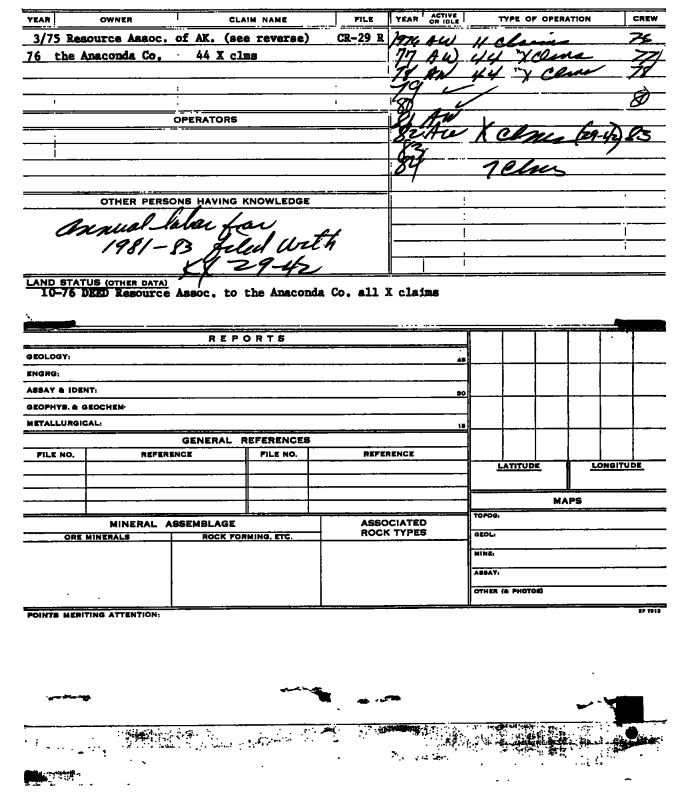 YEAR OWNER CLAIM NAME FILE YEAR ACTIVE OR IDLE TYPE OF OPERATION CREW
3/75 Resource Assoc. of AK. (see reverse) CR-29 R 1976 AW 11 Claims 76
76 the Anaconda Co, 44 X clms 77 AW 44 "X Clms 77
78 AW 44 "X Clms 78
79 ✓
80 ✓ 80
OPERATORS 81 AW
82 AW X Clms (29-42) 83
83
84 7 Clms
OTHER PERSONS HAVING KNOWLEDGE
Annual labor for
1981-83 filed with
29-42
LAND STATUS (OTHER DATA)
10-76 DEED Resource Assoc. to the Anaconda Co. all X claims
REPORTS
GEOLOGY: 45
ENGRG:
ASSAY & IDENT: 30
GEOPHYS. & GEOCHEM-
METALLURGICAL: 15
GENERAL REFERENCES
FILE NO. REFERENCE FILE NO. REFERENCE
LATITUDE LONGITUDE
MAPS
MINERAL ASSEMBLAGE ASSOCIATED ROCK TYPES
ORE MINERALS ROCK FORMING, ETC.
TOPOG:
GEOL:
MINE:
ASSAY:
OTHER (& PHOTOS)
POINTS MERITING ATTENTION: